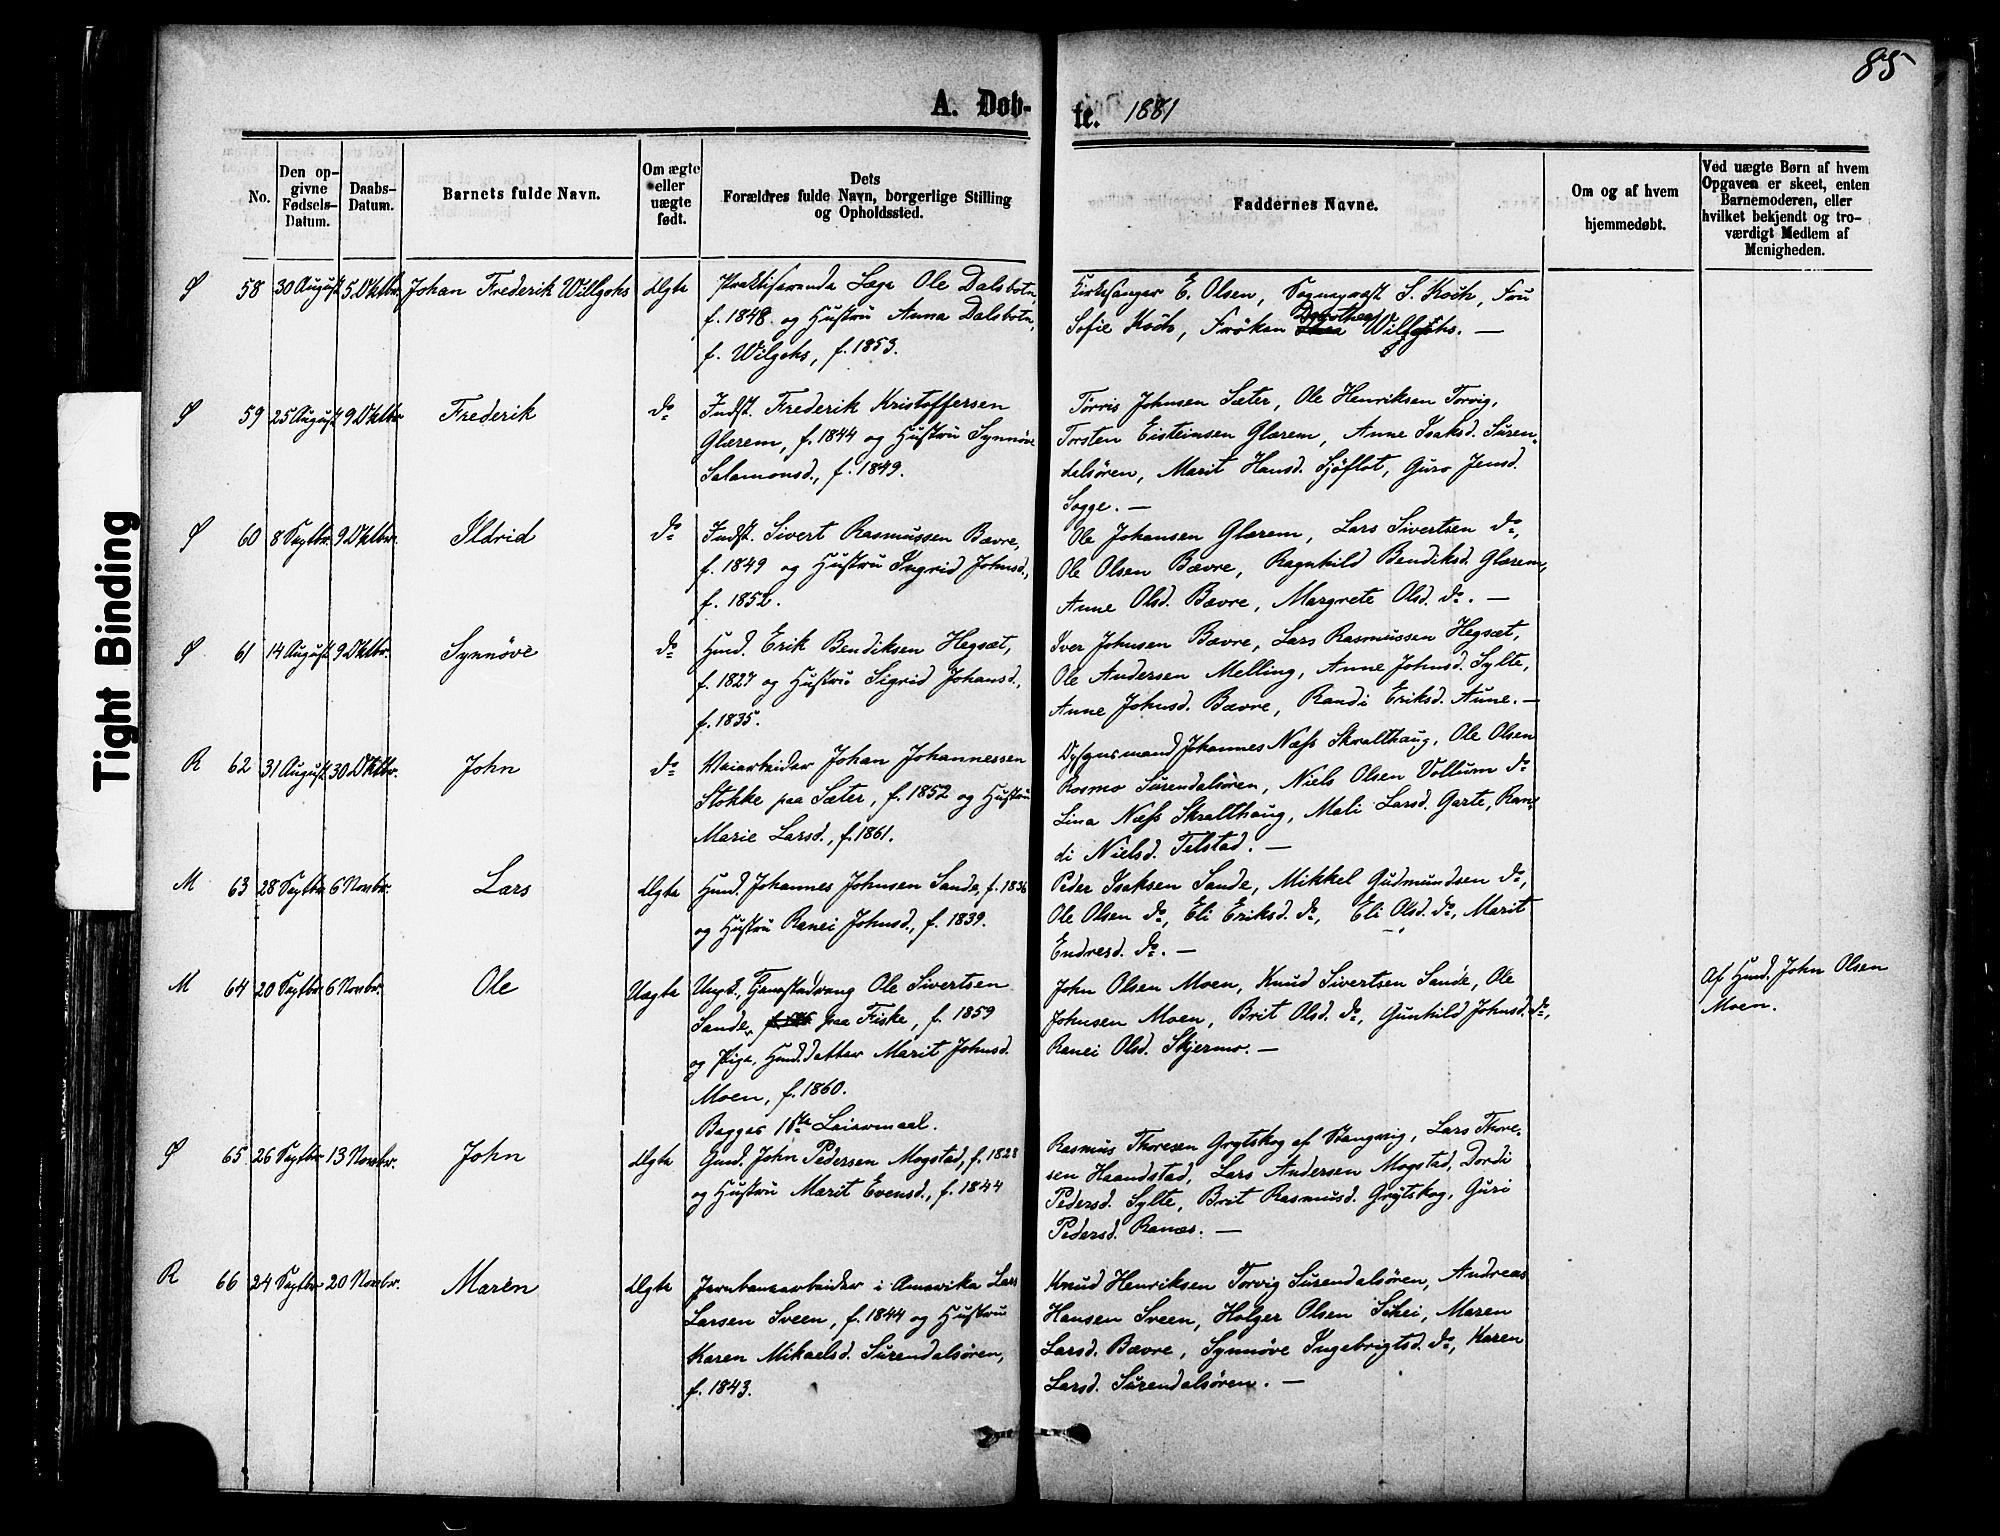 85
A. Døb-
te. 1881
No.
Den op-
givne
Fødsels-
Datum.
Daabs-
Datum.
Barnets fulde Navn.
Om ægte
eller
uægte
født.
Dets
Forældres fulde Navn, borgerlige Stilling
og Opholdssted.
Faddernes Navne.
Om og af hvem
hjemmedøbt.
Ved uægte Børn af hvem
Opgaven er skeet, enten
Barnemoderen, eller
hvilket bekjendt og tro-
værdigt Medlem af
Menigheden.
Tight Binding
58 30 August 5. Oktbr. Johan Frederik Willgohs Ægte
Praktiserende Læge Ole Dalsbotn,
f. 1848 og Hustru Anna Dalsbotn,
f. Wilgohs, f. 1853.
Kirkesanger E. Olsen, Sognepræst S. Koch, Fru
Sofie Koch, Frøken Dorothea Willgohs. —
59 25 August 9 Oktbr. Frederik do
Indst. Frederik Kristoffersen
Glærem, f. 1844 og Hustru Synnøve
Salamonsd., f. 1849.
Torris Johnsen Sæter, Ole Henriksen Torvig,
Torsten Eisteinsen Glærem, Anne Isaksd. Suren-
delsören, Marit Hansd. Sjöflot, Guro Jensd.
Sogge. —
60 8 Septbr. 9 Oktbr. Ildrid do
Indst. Sivert Rasmussen Bævre,
f. 1849 og Hustru Ingrid Johnsd.,
f. 1852.
Ole Johansen Glærem, Lars Sivertsen do,
Ole Olsen Bævre, Ragnhild Bendiksd. Glærem,
Anne Olsd. Bævre, Margrete Olsd. do. —
61 14 August 9 Oktbr. Synnöve do
Gmd. Erik Bendiksen Hegsæt,
f. 1827 og Hustru Sigrid Johansd.,
f. 1835.
Iver Johnsen Bævre, Lars Rasmussen Hegsæt,
Ole Andersen Melling, Anne Johnsd. Sylte,
Anne Johnsd. Bævre, Randi Eriksd. Aune. —
R 62 31 August 30 Oktbr. John do
Veiarbeider Johan Johannessen
Stokke paa Sæter, f. 1852 og Hustru
Marie Larsd., f. 1861.
Johannes Næss Skralthaug, Ole Olsen
Rosmo Surendalsören, Niels Olsen Vollum do
Lina Næss Skralthaug, Mali Larsd. Garte, Ran-
di Nielsd. Telstad. —
M 63 28 Septbr. 6 Novbr. Lars Ægte
Gmd. Johannes Johnsen Sande, f. 1836
og Hustru Ranei Johnsd., f. 1839.
Peder Isaksen Sande, Mikkel Gudmundsen do,
Ole Olsen do, Eli Eriksd. do, Eli Olsd. do, Marit
Endresd. do. —
M 64 20 Septbr. 6 Novbr. Ole Uægte
Ungk., Ole Sivertsen
Sande, paa Fiske, f. 1859
og Pige, Gmd.datter Marit Johnsd.
Moen, f. 1860.
Begges 1ste Leiermaal.
John Olsen Moen, Knud Sivertsen Sande, Ole
Johnsen Moen, Brit Olsd. do, Gunhild Johnsd. do,
Ranei Olsd. Skjermo. —
Af Gmd. John Olsen
Moen.
65 26 Septbr. 13 Novbr. John Ægte
Gmd. John Pedersen Mogstad, f. 1828
og Hustru Marit Evensd., f. 1844
Rasmus Thoresen Grytskog af Stangvig, Lars Thore-
sen Haandstad, Lars Andersen Mogstad, Dordi
Pedersd. Sylte, Brit Rasmusd. Grytskog, Guri
Pedersd. Ranæs. —
R 66 24 Septbr. 20 Novbr. Maren Ægte
Jernbanearbeider i Amerika Lars
Larsen Sveen, f. 1844 og Hustru
Karen Mikaelsd. Surendalsören,
f. 1843.
Knud Henriksen Torvig Surendalsören, Andreas
Hansen Sveen, Holger Olsen Schei, Maren
Larsd. Bævre, Synnöve Ingebrigtsd. do, Karen
Larsd. Surendalsören. —